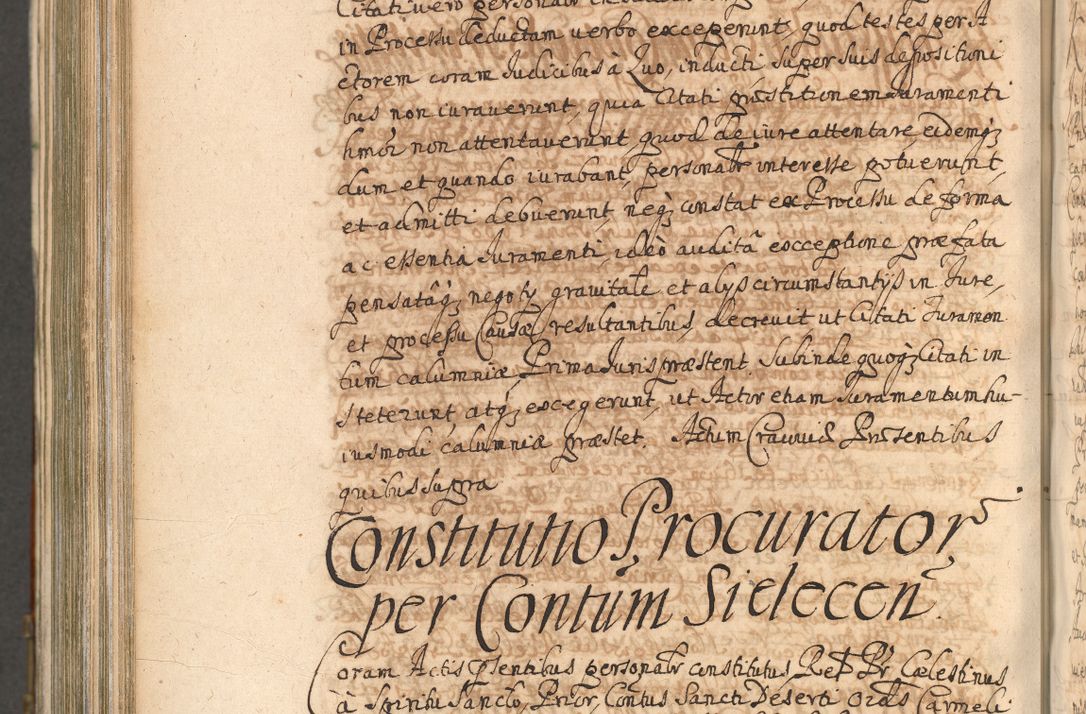 Citati vero personalr in
in Processu deductam verbo exceperunt, quod testes per A
ctorem coram Judicibus à Quo, inducti super suis depositioni
bus non iuraverunt, quia Citati præstitionem Juramenti
hmōi non attentaverunt, quod de iure attentare, eidemq;
dum et quando iurabant, personalr interesse potuerunt,
et admitti debuerunt, neq; constat ex Processu de forma
ac essentia Juramenti, ideò auditâ exceptione præfata
pensatâq; negoty gravitate et alys circumstantys in Jure,
et processu Causæ resultantibus, decrevit ut Citati Juramen
tum calumniæ Prima Juris præstent. Subinde quoq; Citati in
steterunt, atq; exceperunt, ut Actor etiam Juramentum hu-
iusmodi calumniæ præstet. Actum Cracoviæ Præsentibus
quibus supra
Constitutio Procurator
per Contum Sielecen
Coram Actis psentibus personalr constitutus Red Pr Cælestinus
à Spiritu Sancto, Prior, Contus Sancti Deserti Ordis Carmeli